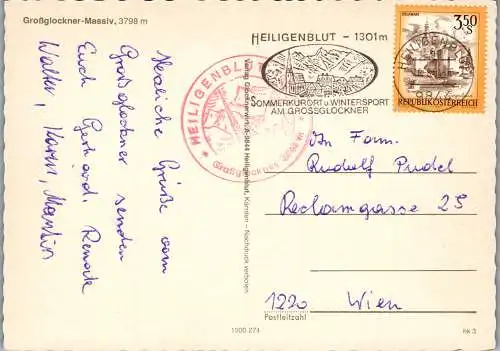 Großglockner-Massiv, 3798 m
Herzliche Grüße vom
Großglockner senden
Euch Gerhard, Renate
Walter, Karin, Martin
HEILIGENBLUT
Großglockner 3798 m
Verlag A-9844 Heiligenblut, Kärnten - Nachdruck verboten
HEILIGENBLUT - 1301m
SOMMERKURORT u. WINTERSPORT
AM GROSSGLOCKNER
HEILIGENBLUT
9844
3.50
S
REPUBLIK ÖSTERREICH
An Fam.
Rudolf Pudel
Reclamgasse 25
1220 Wien
Postleitzahl
1000 274
hk 3